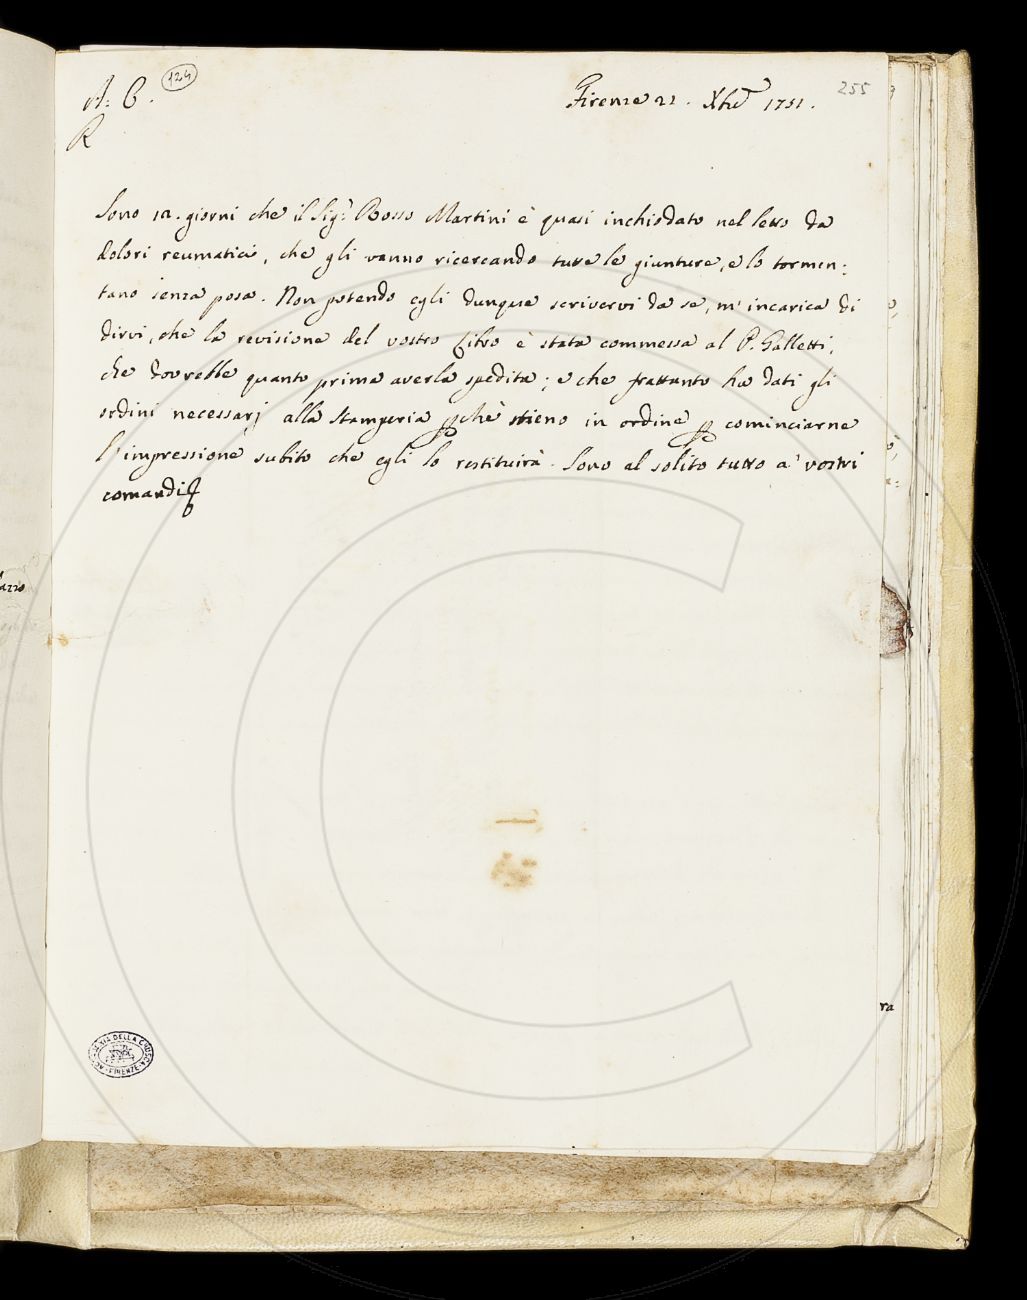 A: C.
124
Firenze 21. Xbre 1751.
255
R
Sono 12. giorni che il Sigr. Rosso Martini è quasi inchiodato nel letto da
dolori reumatici, che gli vanno ricercando tutte le giunture, e lo tormen:
tano senza posa. Non potendo egli dunque scrivervi da se, m'incarica di
dirvi, che la revisione del vostro Libro è stata commessa al P. Galletti,
che dovrebbe quanto prima averla spedita; e che frattanto ha dati gli
ordini necessarj alla Stamperia pchè stieno in ordine p cominciarne
l'impressione subito che egli lo restituirà. Sono al solito tutto a' vostri
comandi
azzo
ra
ACCADEMIA DELLA CRUSCA
FIRENZE